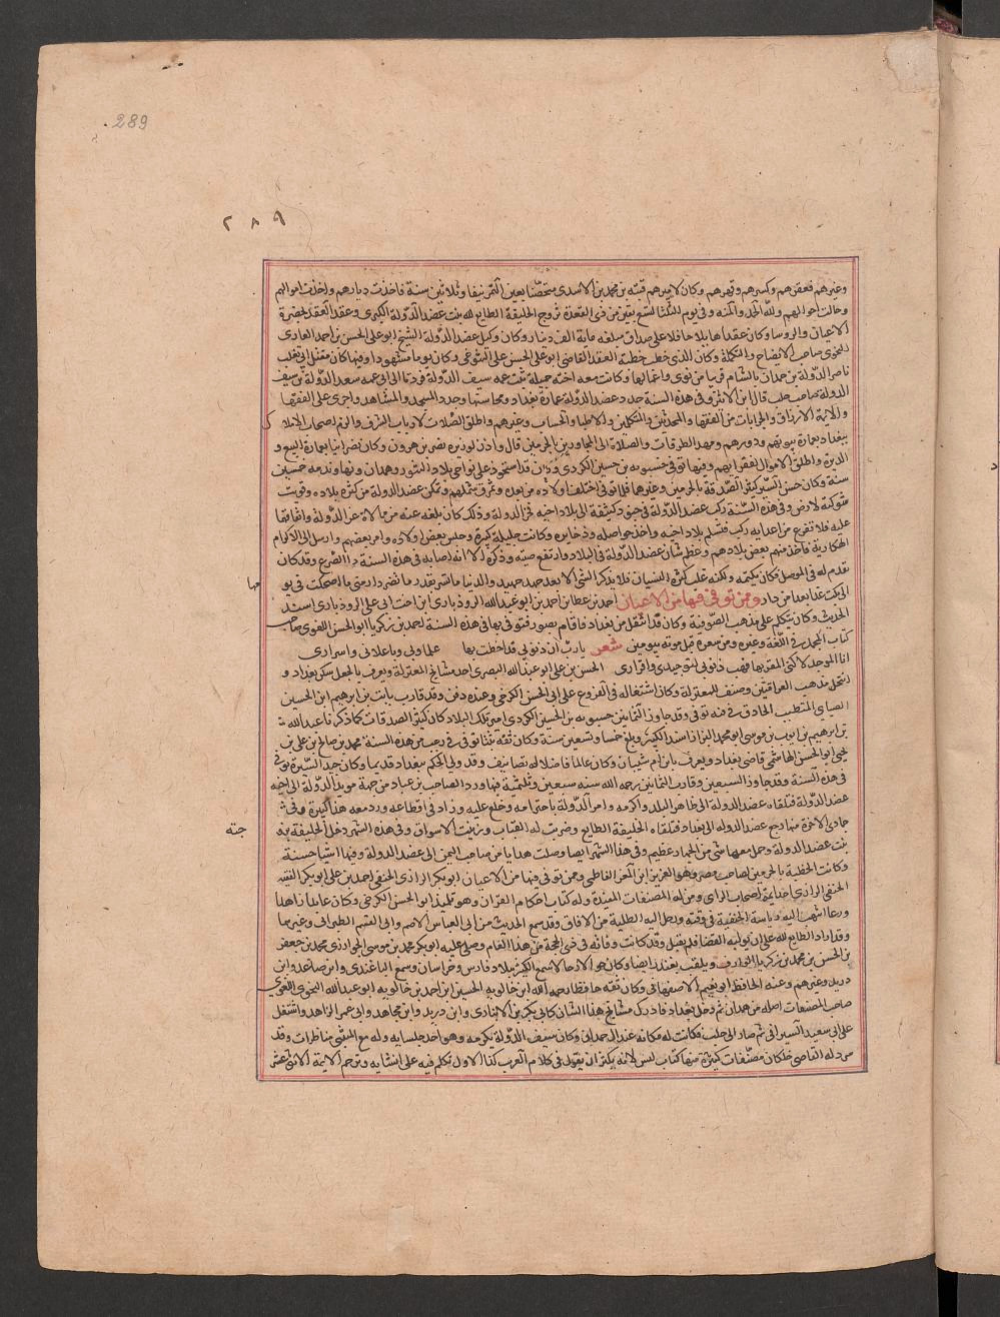 289
٢٨٩
وغيرهم فعقرهم وكسرهم وقهرهم وكان لاميرهم ضبة بن محمد بن الاسدى متحصنا بعين التمر نيفا وثلاثين سنة فاخذت ديارهم واخذت اموالهم
وحالت احوالهم ولله الحمد والمنة وفى يوم الثلثا لتسع بقين من ذى القعدة تزوج الخليفة الطايع لله بنت عضد الدولة الكبرى وعقد العقد بحضرة
الاعيان والروسا وكان عقدا هايلا حافلا على صداق مبلغه ماية الف دينار وكان وكيل عضد الدولة الشيخ ابو على الحسن بن احمد الفارسى
النحوى صاحب الايضاح والتكملة وكان الذى خطب خطبة العقد القاضى ابو على الحسن على التنوخى وكان يوما مشهودا وفيها كان مقتل ابى تغلب
ناصر الدولة بن حمدان بالشام قريبا من نوى واعمالها وكانت معه اخته جميلة بنت عمه سيف الدولة فردتا الى ابن عمه سعد الدولة بن سيف
الدولة صاحب حلب قال ابن الاثير وفى هذه السنة جدد عضد الدولة عمارة بغداد ومحاسنها وجدد المسجد والمشاهد واجرى على الفقها
والايمة الارزاق والجرايات من الفقها والمحدثين والمتكلمين والاطبا والحساب وغيرهم واطلق الصلات لارباب الشرف والزم اصحاب الاملاك
ببغداد بعمارة بيوتهم ودورهم ومهد الطرقات والصلاة الى المجاورين بالحرمين قال واذن لوزيره نصر بن هرون وكان نصرانيا بعمارة البيع و
الديرة واطلق الاموال لفقرايهم وفيها توفى حسنويه بن حسين الكردى وكان قد استحوذ على نواحى بلاد الدينور وهمدان ونهاوند مدة خمسين
سنة وكان حسن السيرة كثير الصدقة بالحرمين وغيرها فلما توفى اختلف اولاده من بعده وتمزق شملهم وتمكن عضد الدولة من كثرة بلاده وقويت
شوكته لارض وفى هذه السنة ركب عضد الدولة فى جنود كثيفة الى بلاد اخيه فخر الدولة وذلك كان بلغه عنه من ممالاة عز الدولة واتفاقها
عليه فلما تفرغ من اعدايه ركب فتسلم بلاد اخيه واخذ حواصله وذخايره وكانت جليلة كثيرة وحبس بعض اولاده وامر بعضهم وارسل الى الاكراد
الهكارية فاخذ منهم بعض بلادهم وعظم شان عضد الدولة فى البلاد وارتفع صيته وذكره الا انه اصابه فى هذه السنة دا الصرع وقد كان
تقدم له فى الموصل فكان يكتمه ولكنه غلب كثرة النسيان فلا يذكر الشى الا بعد جهد جهيد والدنيا ما تسر بقدر ما تضر دار متى ما اضحكت فى يو
مها
ابكت غدا بعدا من دار ومن توفى فيها من الاعيان احمد بن عطا بن احمد بن ابو عبد الله الروذبارى ابن اخت ابى على الروذبارى اسند
الحديث وكان يتكلم على مذهب الصوفية وكان قد انتقل من بغداد فاقام بصور فتوفى بها فى هذه السنة احمد بن زكريا ابو الحسن اللغوى صاحب
كتاب المجمل فى اللغة وغيره ومن شعره قبل موته بيومين شعر يا رب ان ذنوبى قد احطت بها علما وبى وباعلانى واسرارى
انا الموحد لاكنى المقر بها فهب ذنوبى لتوحيدى واقرارى الحسن بن على ابو عبد الله البصرى احد مشايخ المعتزلة ويعرف بالجعل سكن بغداد و
انتحل مذهب العراقيين وصنف للمعتزلة وكان اشتغاله فى الفروع على ابى الحسن الكرخى وعنده دفن وقد قارب ثابت بن ابرهيم ابو الحسين
الصابى المتطبب الحاذق فى فنه توفى وقد جاوز الثمانين حسنويه بن الحسين الكردى امير تلك البلاد كان كثير الصدقات كما ذكرنا عبد الله
بن ابرهيم بن ايوب بن موسى ابو محمد البزاز اسند الكثير وبلغ خمسا وتسعين سنة وكان ثقة ثبتا توفى فى رجب من هذه السنة محمد بن صالح بن على بن
يحيى ابو الحسن الهاشمى قاضى بغداد ويعرف بابن ام شيبان وكان عالما فاضلا له تصانيف وقد ولى الحكم ببغداد قديما وكان جيد السيرة توفى
فى هذه السنة وقد جاوز السبعين وقارب الثمانين رحمه الله سنه سبعين وثلثمية فيها ورد الصاحب بن عباد من جهة مويد الدولة الى اخيه
عضد الدولة فتلقاه عضد الدولة الى ظاهر البلد واكرمه وامر الدولة باحترامه وخلع عليه وزاد فى اقطاعه ورد معه هدايا كثيرة وفى
جمادى الاخرة منها رجع عضد الدوله الى بغداد فتلقاه الخليفة الطايع وضربت له القباب وزينت الاسواق وفى هذه الشهر دخل الخليفة بزو
جته
بنت عضد الدولة وحمل معها شى من الجهاز عظيم وفى هذا الشهر ايضا وصلت هدايا من صاحب اليمن الى عضد الدولة وفيها اشيا حسنة
وكانت الخطبة بالحرمين لصاحب مصر وهو العزيز ابن المعز الفاطمى ومن توفى فيها من الاعيان ابو بكر الرازى الحنفى احمد بن على ابو بكر الفقيه
الحنفى الرازى احد ايمة اصحاب الراى ومن له المصنفات المفيدة وله كتاب احكام القران وهو تلميذ ابو الحسن الكرخى وكان عابدا زاهدا
ورعا انتهت اليه رياسة الحنفية فى وقته ورحل اليه الطلبة من الافاق وقد سمع الحديث من ابى العباس الاصم وابى القسم الطبرانى وغيرهما
وقد اراد الطايع لله على ان يوليه القضا فلم يقبل وقد كانت وفاته فى ذى الحجة من هذا العام وصلى عليه ابو بكر محمد بن موسى الخوارزمى محمد بن جعفر
بن الحسن بن محمد بن زكريا الوراق ويلقب بغندر ايضا وكان جوالا رحالا سمع الكثير ببلاد فارس وخراسان وسمع الباغندى وابن صاعد وابن
دريد وغيرهم وعنه الحافظ ابو نعيم الاصفهانى وكان ثقة حافظا رحمه الله ابن خالويه الحسين ابن احمد بن خالويه ابو عبد الله النحوى اللغوى
صاحب المصنفات اصله من همدان ثم دخل بغداد فادرك مشايخ هذا الشان كابى بكر بن الانبارى وابن دريد وابن مجاهد وابى عمر الزاهد واشتغل
على ابى سعيد السيرافى ثم صار الى حلب فكانت له مكانه عند ال حمدان وكان سيف الدولة يكرمه وهو احد جلسايه وله مع المتنبى مناظرات وقد
سرد له القاضى خلكان مصنفات كثيرة منها كتاب ليس لانه يكثر ان يقول فى كلام العرب كذا الاول تكلم فيه على انشايه وترجم الايمة الاثنى عشر